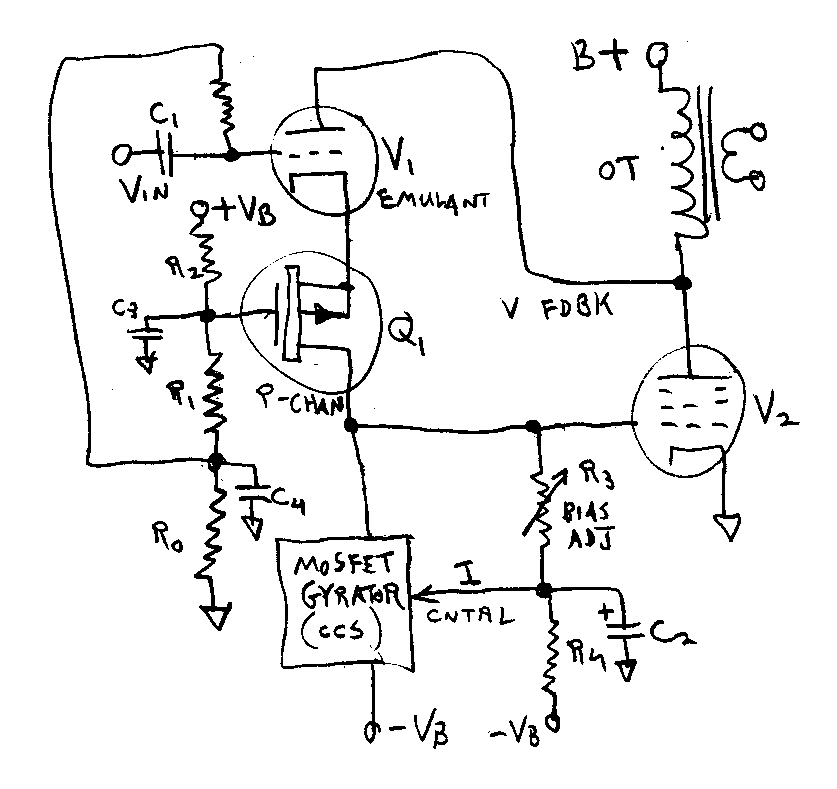 B+
C1
VIN
V1
EMULANT
OT
+VB
R2
C3
V FDBK
Q1
R1
P-CHAN
V2
C4
R0
R3
BIAS
ADJ
MOSFET
GYRATOR
(CCS)
I
CNTRL
+
C2
R4
-VB
-VB